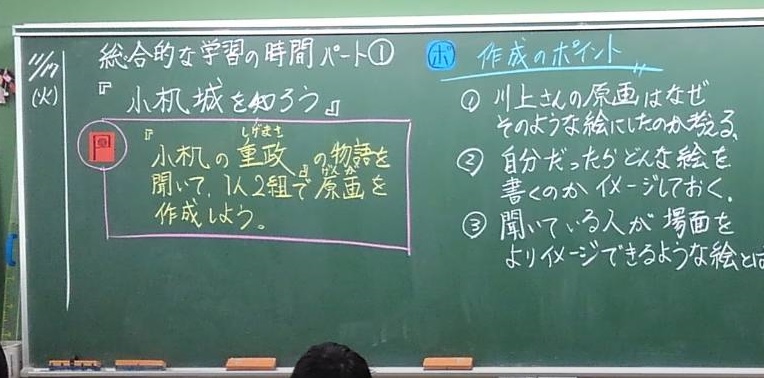 11/17
(火)
総合的な学習の時間 パート①
『小机城を知ろう』
『小机の重政』の物語を
しげまさ
聞いて、1人2組で原画を
げんが
作成しよう。
ポ 作成のポイント
① 川上さんの原画はなぜ
そのような絵にしたのか考える。
② 自分だったらどんな絵を
書くのかイメージしておく。
③ 聞いている人が場面を
よりイメージできるような絵とは